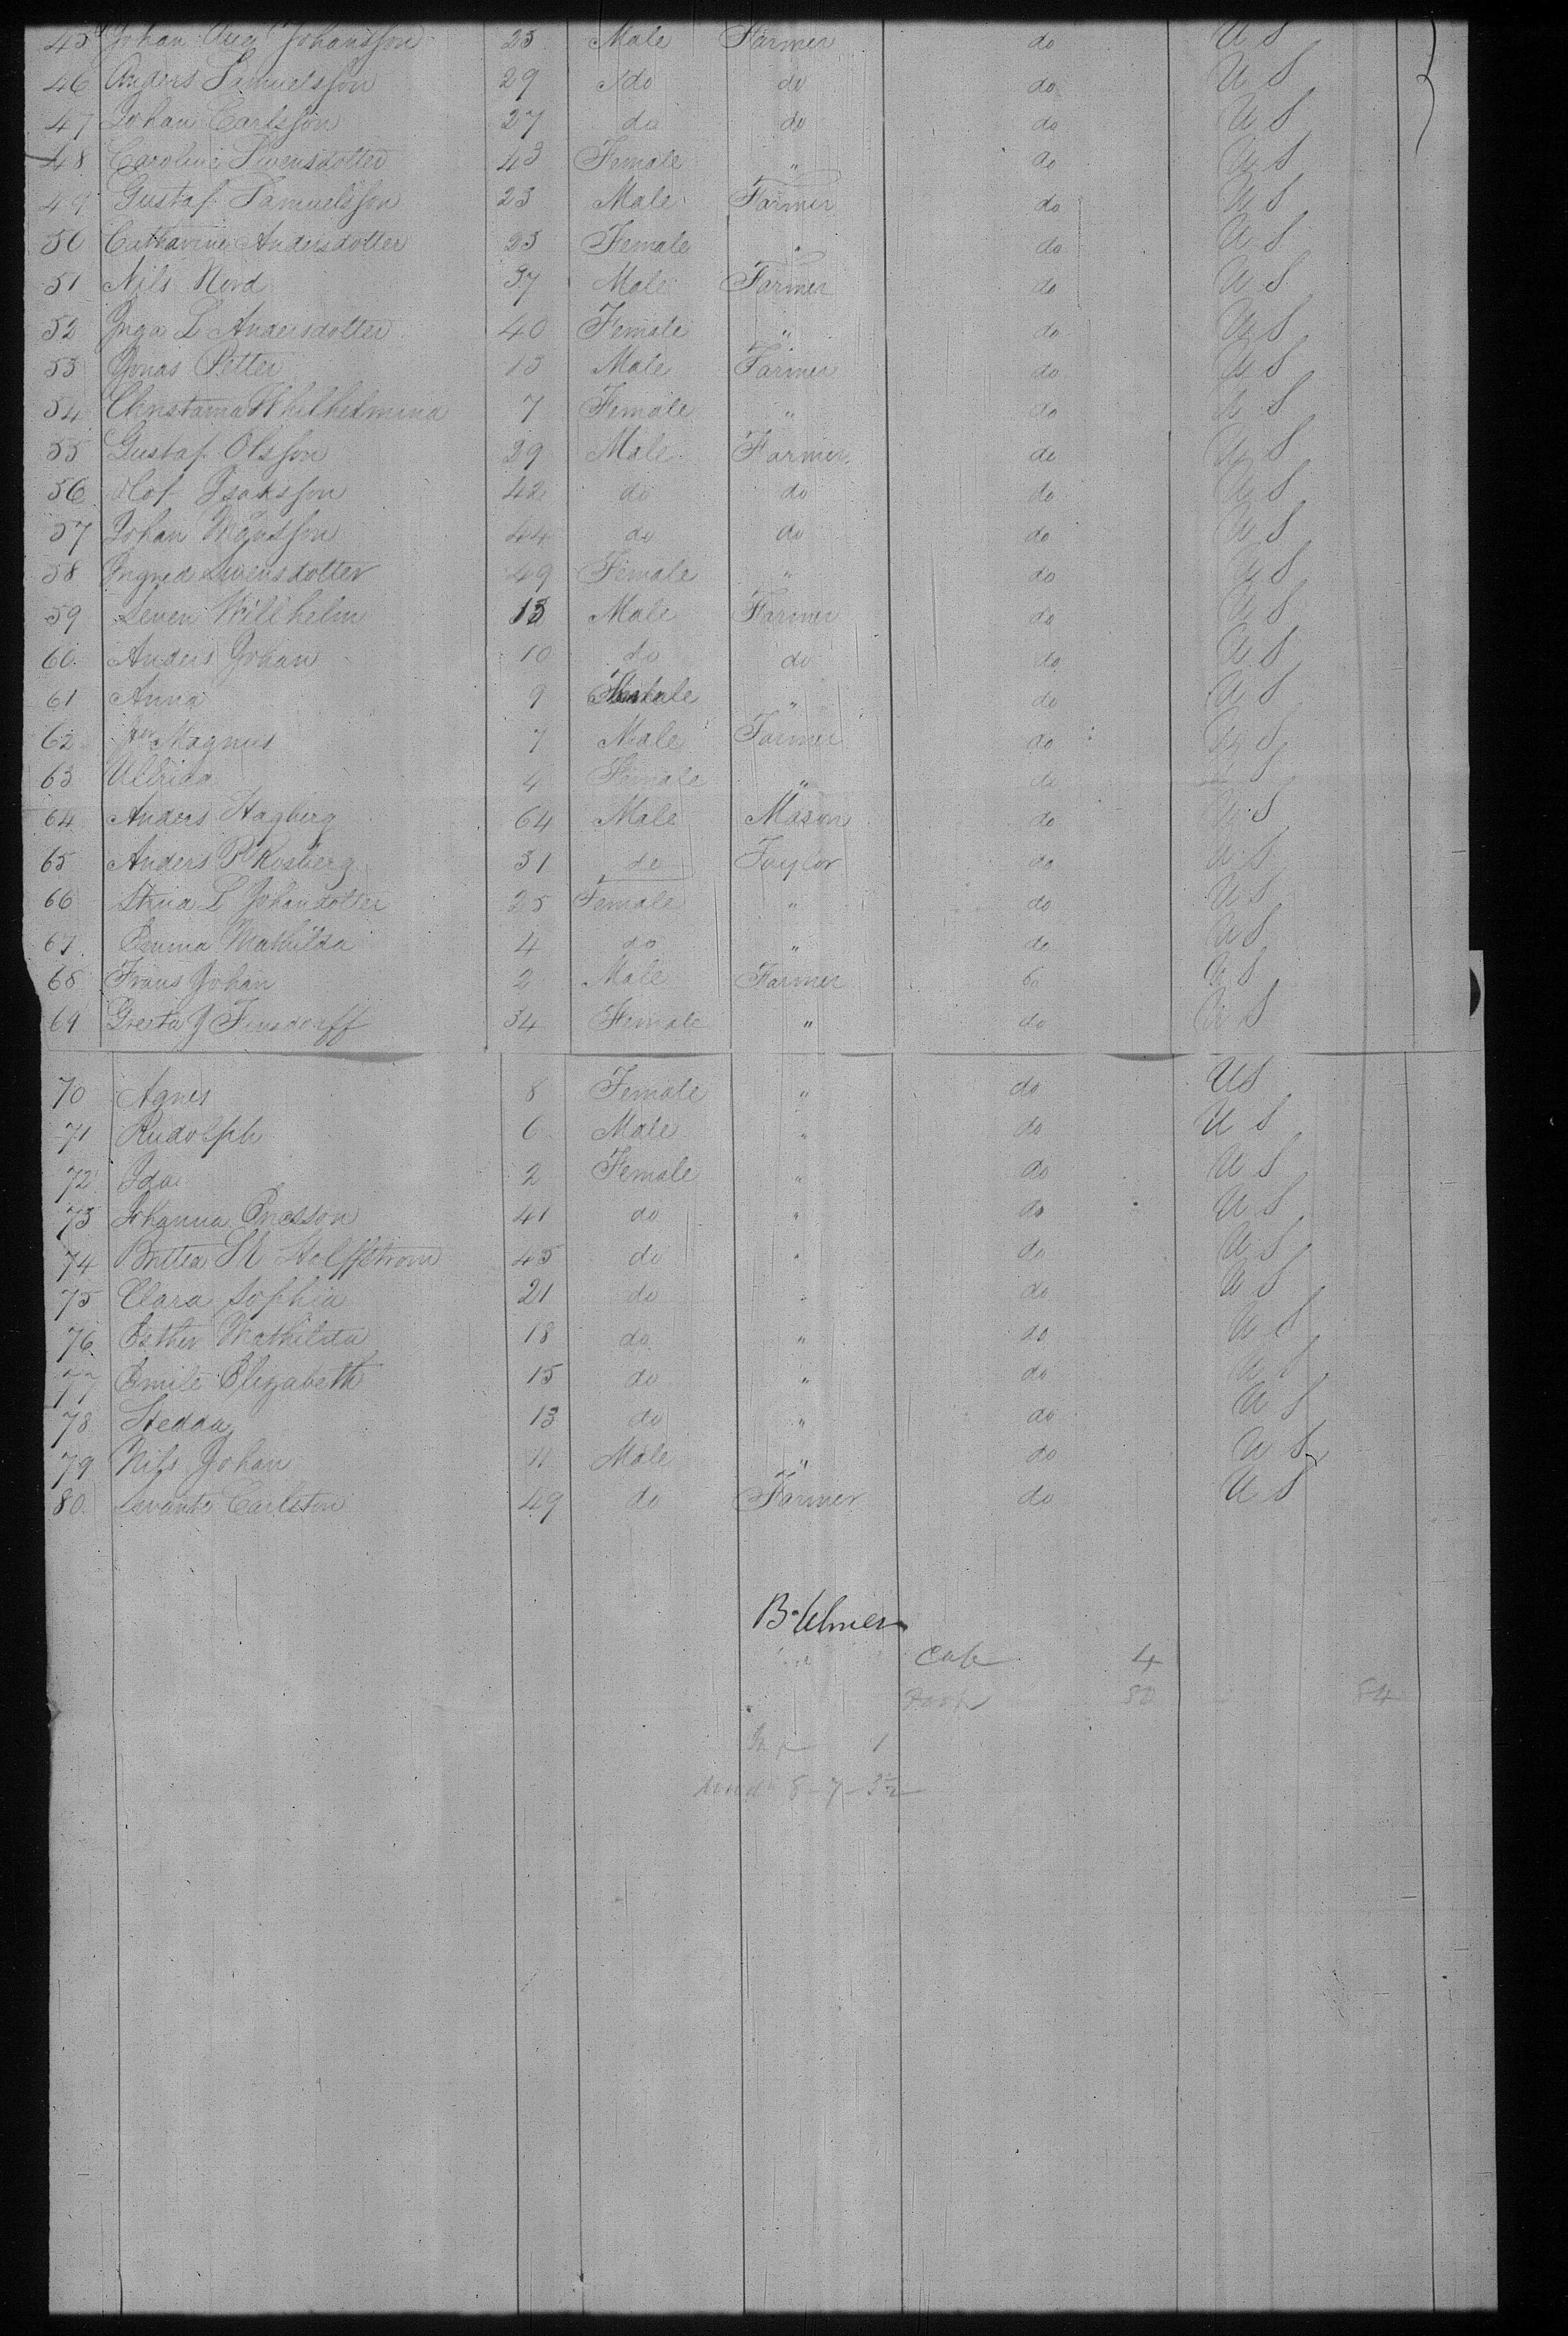 45 Johan Aug Johansson 23 Male Farmer do U S
46 Anders Samuelsson 29 do do do U S
47 Johan Carlsson 27 do do do U S
48 Caroline Swensdotter 43 Female " do U S
49 Gustaf Samuelsson 23 Male Farmer do U S
50 Catharine Andersdotter 23 Female " do U S
51 Nils Nord 37 Male Farmer do U S
52 Inga L Andersdotter 40 Female " do U S
53 Jonas Petter 13 Male Farmer do U S
54 Whilhelmina 7 Female " do U S
55 Gustaf Olsson 29 Male Farmer do U S
56 Olof Isaksson 42 do do do U S
57 Johan Månsson 44 do do do U S
58 Ingred Swensdotter 49 Female " do U S
59 Seven Willhelm 13 Male Farmer do U S
60 Anders Johan 10 do do do U S
61 Anna 9 Female " do U S
62 Magnus 7 Male Farmer do U S
63 Ullrica 4 Female " do U S
64 Anders Hagberg 64 Male Mason do U S
65 Anders P Rosberg 31 do Taylor do U S
66 Stina L Johansdotter 25 Female " do U S
67 Emma Mathilda 4 do " do U S
68 Frans Johan 2 Male Farmer do U S
69 Greeta J 34 Female " do U S
70 Agnes 8 Female " do U S
71 Rudolph 6 Male " do U S
72 Ida 2 Female " do U S
73 Johanna Ericsson 41 do " do U S
74 Britta M 45 do " do U S
75 Clara Sophia 21 do " do U S
76 Esther Mathilda 18 do " do U S
77 Emile Elizabeth 15 do " do U S
78 Hedda 13 do " do U S
79 Nils Johan 11 Male " do U S
80 Swante Carlston 49 do Farmer do U S
4
80 84
1
8-7-